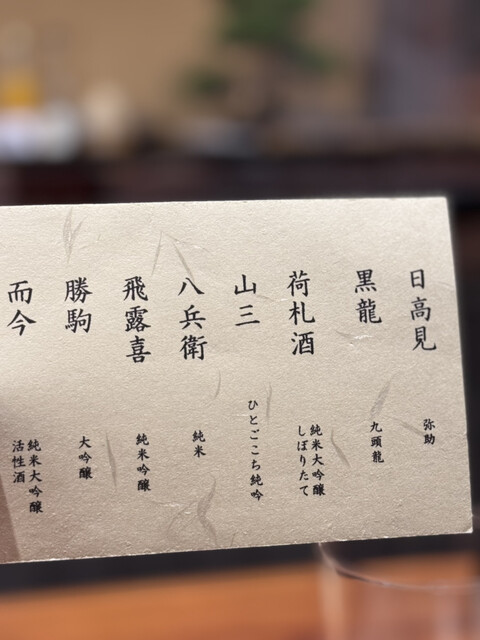 日高見
弥助
黒龍
九頭龍
荷札酒
純米大吟醸
しぼりたて
山三
ひとごこち純吟
八兵衛
純米
飛露喜
純米吟醸
勝駒
大吟醸
而今
純米大吟醸
活性酒